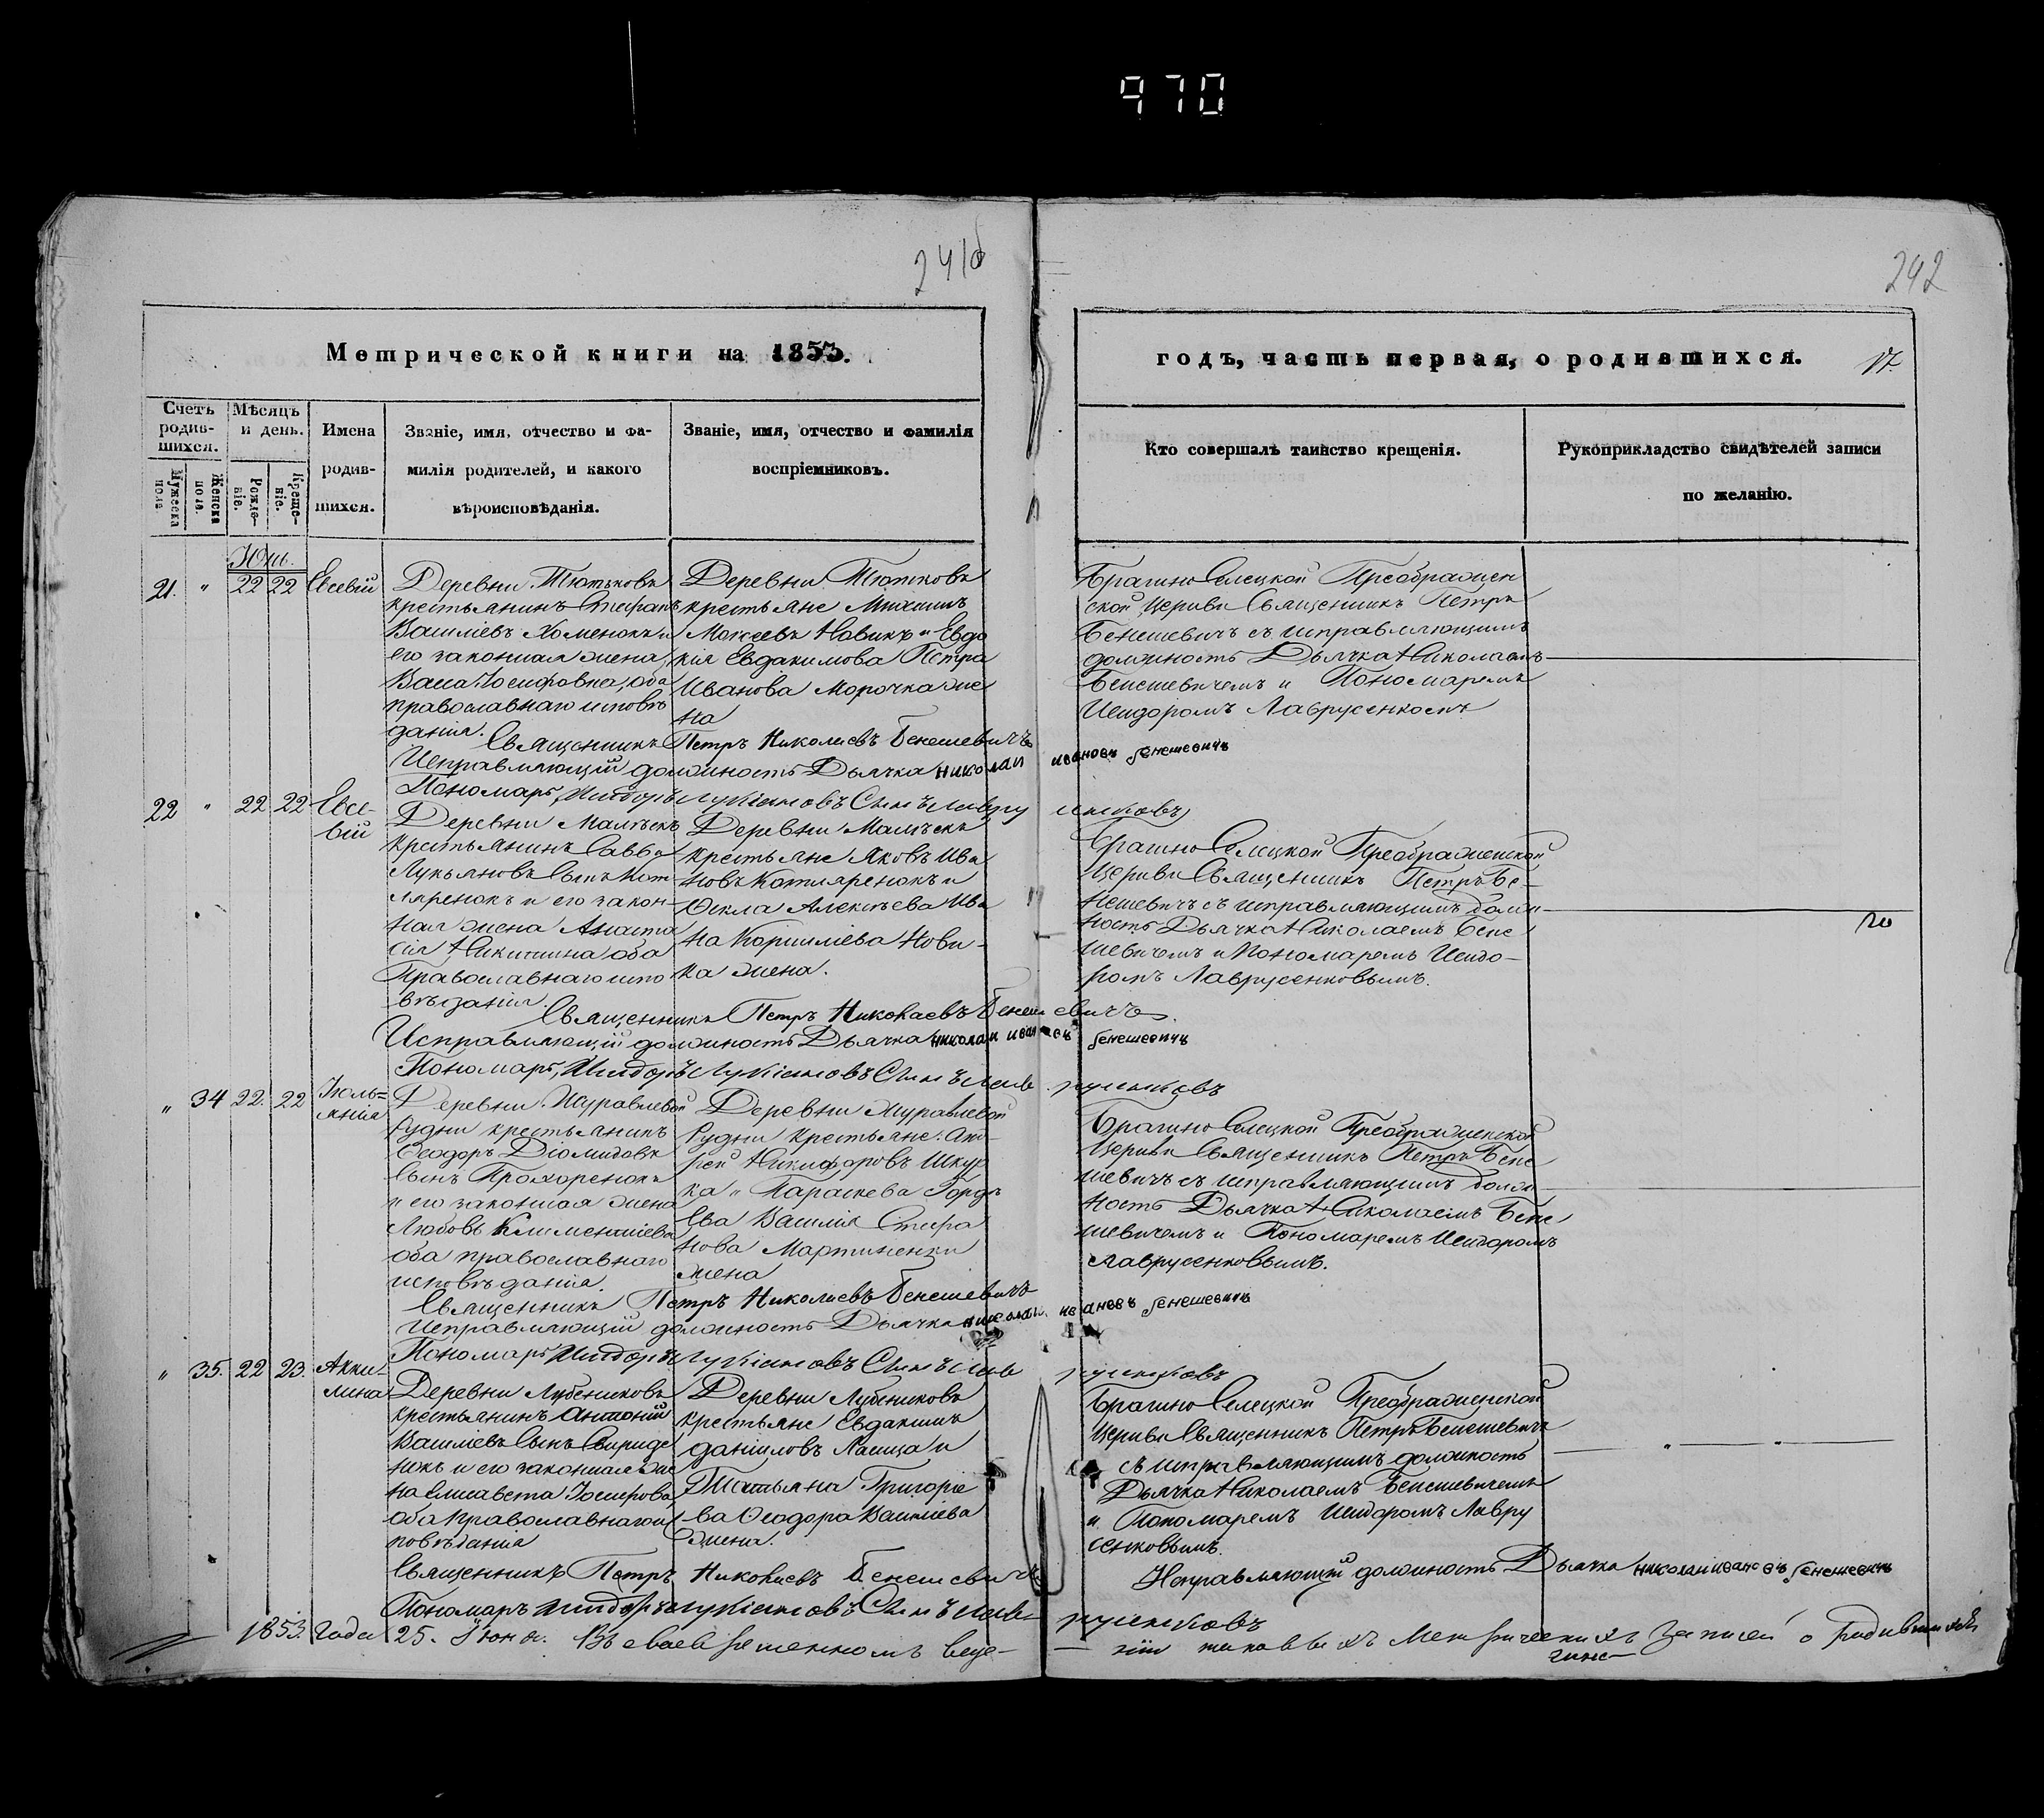 970
241б
242
Метрической книги на 1853.
годъ, часть первая, о родившихся.
17.
Счетъ родив-шихся.
Мѣсяцъ и день.
Мужеска пола.
Женска пола.
Рожде-ніе.
Креще-ніе.
Имена
родив-
шихся.
Званіе, имя, отчество и фа-
милія родителей, и какого
вѣроисповѣданія.
Званіе, имя, отчество и фамилія
воспріемниковъ.
Кто совершалъ таинство крещенія.
Рукоприкладство свидѣтелей записи
по желанію.
Юнь.
21. " 22 22 Евсевій
Деревни
крестьянинъ Стефанъ
Василіевъ Хоменокъ и
его законная жена
Іосифовна, оба
православнаго исповѣ
данія.
Деревни
крестьяне Михаилъ
Моисеевъ Новикъ и Евдо
кія Евдакимова Петра
Иванова Морочка же
на
Брагино Селецкой Преображен
ской Церкви Священникъ Петръ
Бенешевичъ съ исправляющимъ
должность Дьячка Николаемъ
Бенешевичемъ и Пономаремъ
Исидоромъ Лаврусенкомъ
Священникъ Петръ Николаевъ Бенешевичъ
Исправляющій должность Дьячка николаи ивановъ бенешевичъ
Пономаръ Исидоръ Лукіановъ Сынъ Лавру сенковъ
22 " 22 22 Евсе-
вій
Деревни
крестьянинъ Савва
Лукьяновъ Сынъ Кот-
ляренокъ и его закон-
ная жена Анаста
сія Никитина оба
Православнаго испо
вѣданія.
Деревни
крестьяне Яковъ Ива
новъ Котляренокъ и
Фекла Алексѣева Ива
на Корнилiева Нови-
ка жена.
Брагино Селецкой Преображенской
Церкви Священникъ Петръ Бе-
нешевичъ съ исправляющимъ долж-
ность Дьячка Николаемъ Бене
шевичемъ и Пономаремъ Исидо-
ромъ Лаврусенковымъ.
Священникъ Петръ Николаевъ Бенешевичъ.
Исправляющій должность Дьячка николаи ивановъ бенешевичъ
Пономаръ, Исидоръ Лукіановъ Сынъ Лав русенковъ
" 34 22. 22 Іюль=
янія
Деревни Журавлевой
Рудни крестьянинъ
Ѳеодоръ Діомидовъ
Сынъ Прохоренокъ
и его законная жена
Любовь Климентіева
оба православнаго
исповѣданія.
Деревни Журавлевой
Рудни крестьяне: Анд-
рей Никифоровъ Шкур
ка и Параскева
ева Василія Стефа
нова Мартиненки
жена
Брагино Селецкой Преображенской
Церкви Священникъ Петръ Бене
шевичъ съ исправляющимъ долж-
ность Дьячка Николаемъ Бене
шевичемъ и Пономаремъ Исидоромъ
Лаврусенковымъ.
Священникъ Петръ Николаевъ Бенешевичъ
Исправляющій должность Дьячка николаи ивановъ бенешевичъ
Пономаръ Исидоръ Лукіановъ Сынъ Лав русенковъ
" 35. 22 23. Акки-
лина
Деревни Лубениковъ
крестьянинъ Антоній
Василіевъ Сынъ Свириде
нокъ и его законная же
на Елисавета Іосифова
оба православнаго ис
повѣданія
Деревни Лубениковъ
крестьяне Евдакимъ
Даніиловъ и
Татьяна Григоріе
ва Ѳеодора Василіева
жена.
Брагино Селецкой Преображенской
Церкви Священникъ Петръ Бенешевичъ
съ исправляющимъ должность
Дьячка Николаемъ Бенешевичемъ
и Пономаремъ Исидоромъ Лавру
сенковымъ.
Священникъ Петръ Николаевъ Бенешевичъ
Исправляющій должность Дьячка николаи ивановъ бенешевичъ
Пономаръ Исидоръ Лукіановъ Сынъ Лав русенковъ
1853. года 25. Іюня. Въ своевременномъ веде- ніи таковыхъ Метрическихъ записей о родившихся